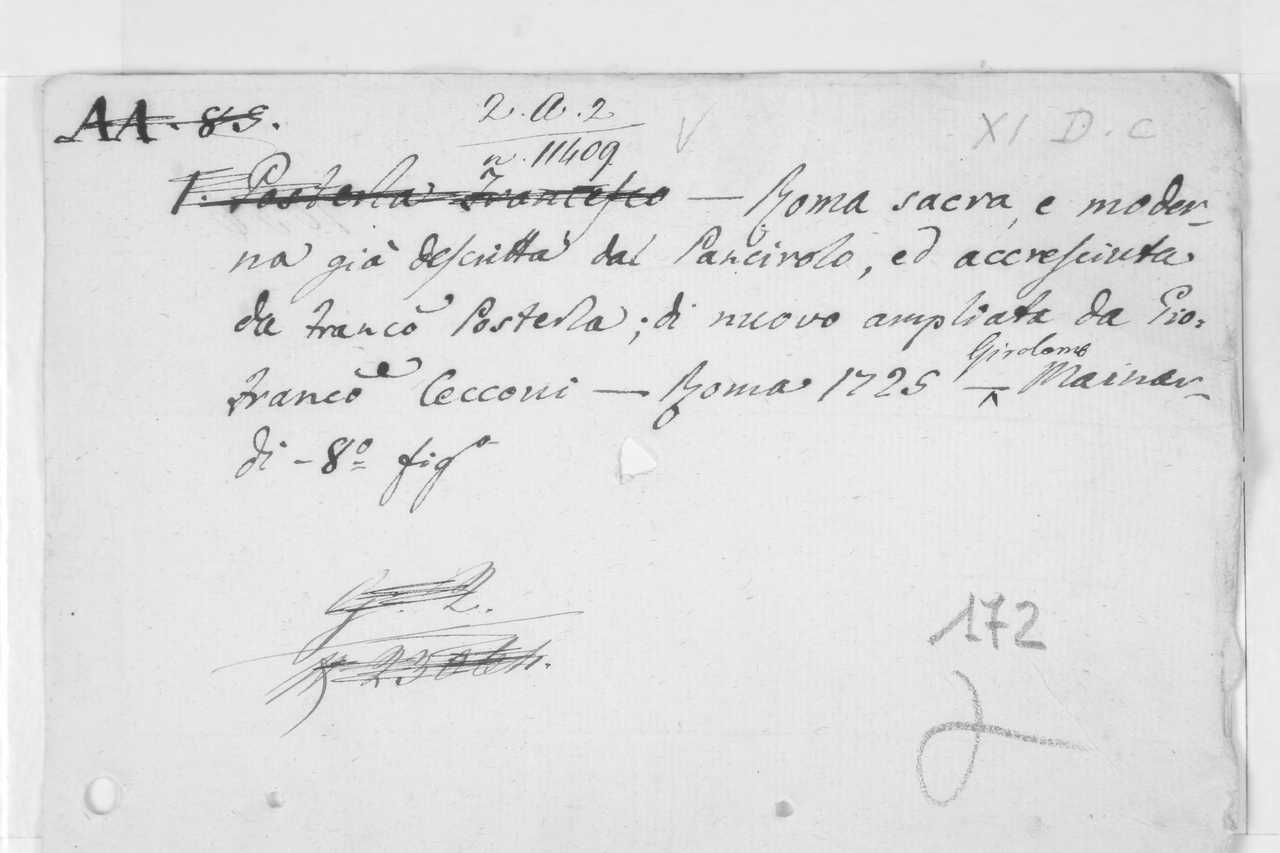 AA. 85.
2. A. 2
V
XI D. C
n. 11409
1. Posterla Francesco — Roma sacra, e moder-
na già descritta dal Pancirolo, ed accresciuta
da Franc.o Posterla; di nuovo ampliata da Gio:
Girolamo
Franc.o Cecconi — Roma 1725 ^ Mainar-
di - 8.o fig.o
G. 2.
172